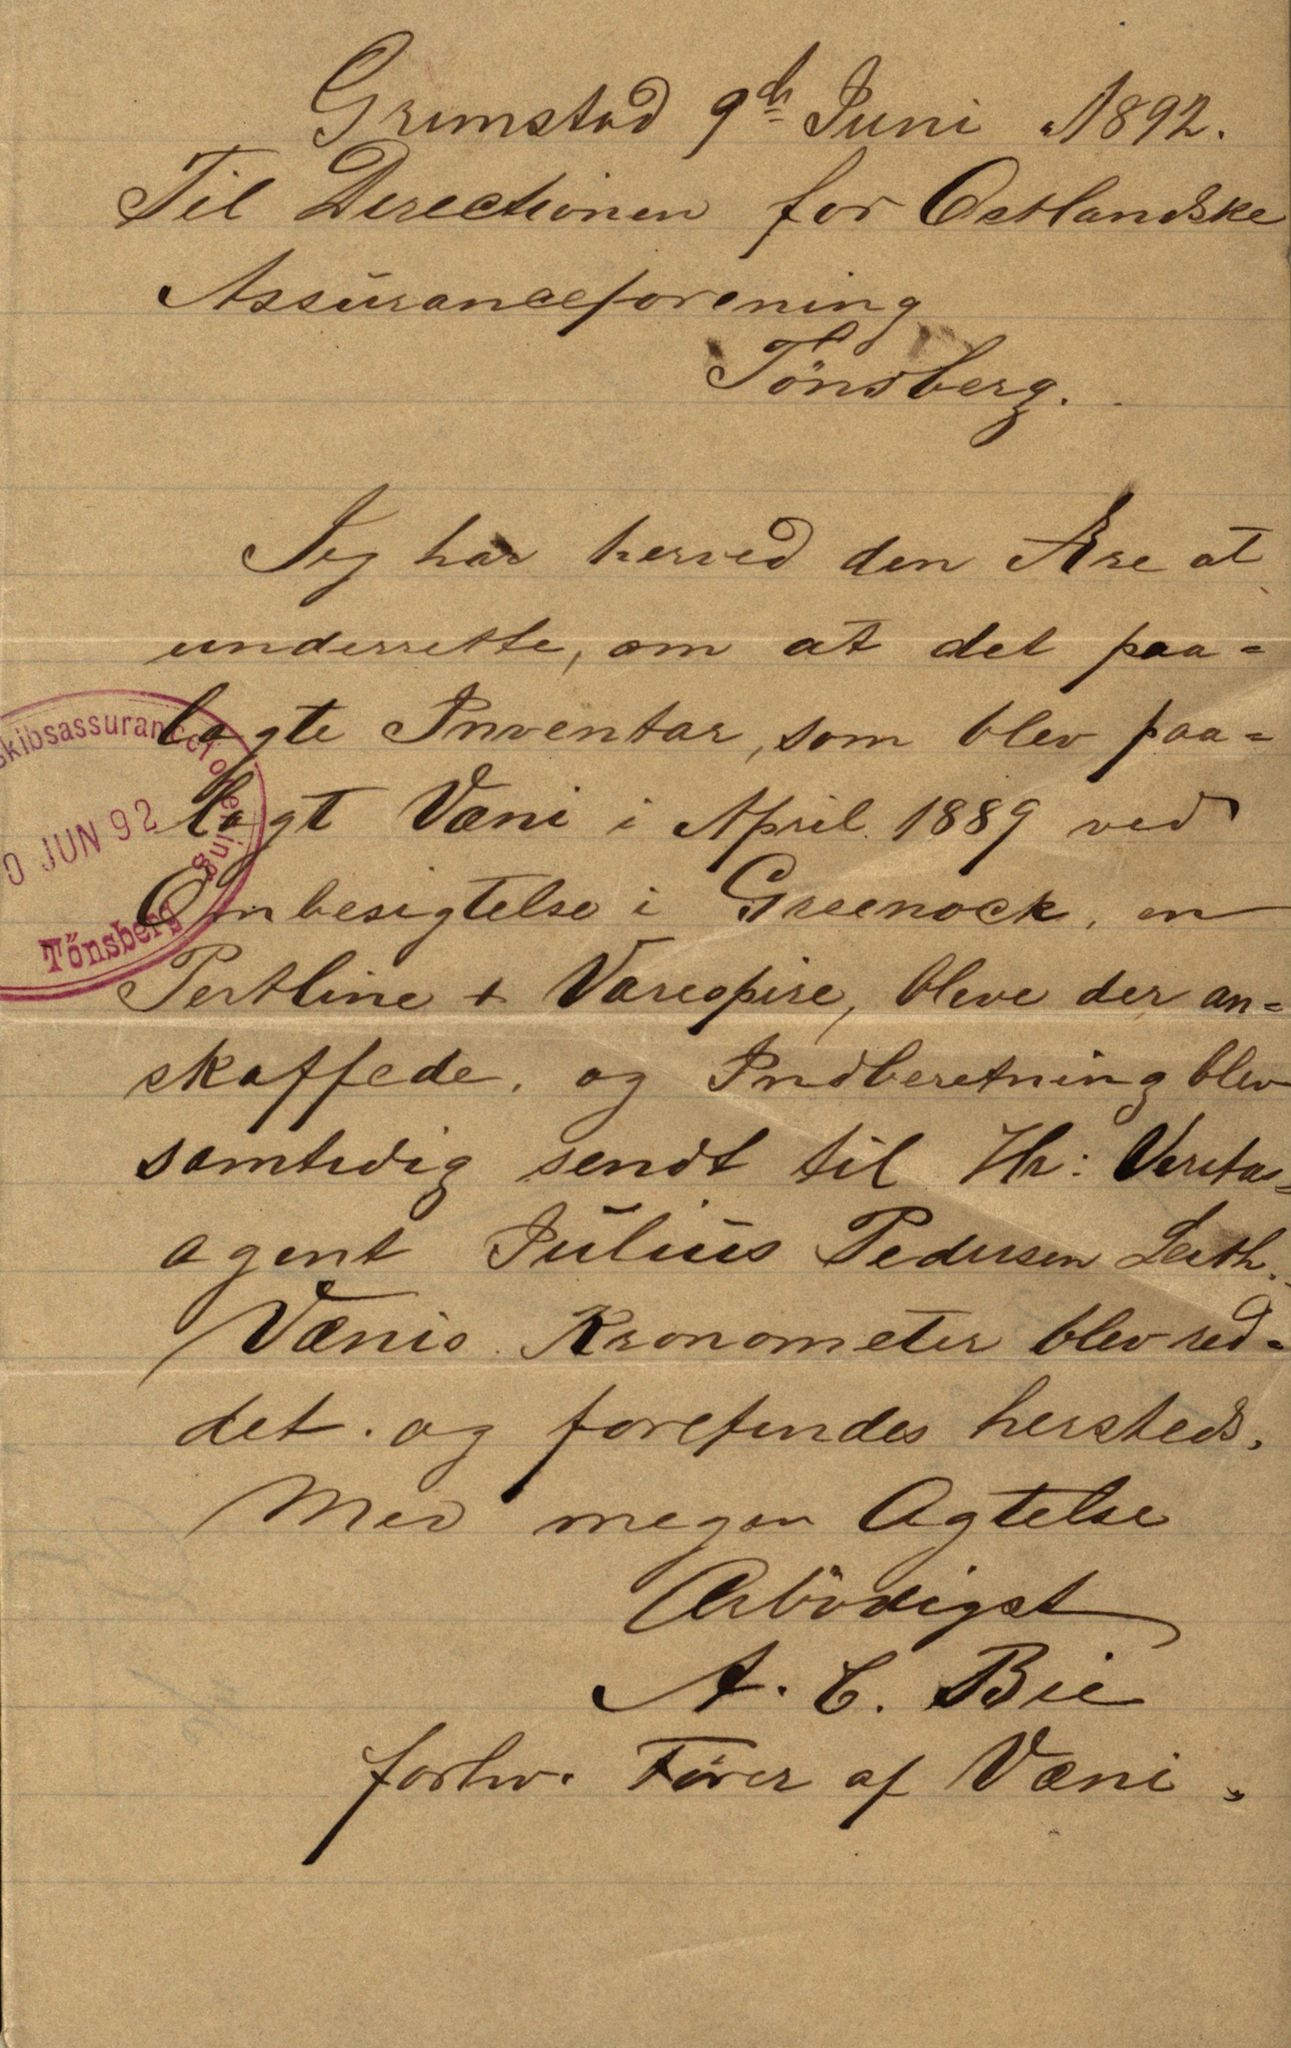 Grimstad 9de Juni 1892.
Til Directionen for Ostlandske
Assuranceforening
Tönsberg.
Jeg har herved den Ære at
underrette, om at det paa=
lagte Inventar, som blev paa=
lagt Væni i April 1889 ved
Ombesigtelse i Greenock, en
Pertline + Varegpire, bleve der an=
skaffede, og Indberetning blev
samtidig sendt til Hr: Veritas=
agent Julius Pedersen Leith.
Vænis Kronometer blev red=
det. og forefindes hersteds.
Med megen Agtelse
Ærbödigst
A. C. Bie
forhv. Förer af Væni.
skibsassuranceforening
0 JUN 92
Tönsberg